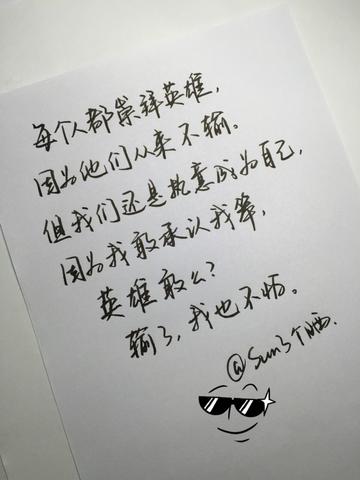 每个人都崇拜英雄，
因为他们从来不输。
但我们还是执意成为自己，
因为我敢承认我笨，
英雄敢么？
输了，我也不怕。
@Sun了个